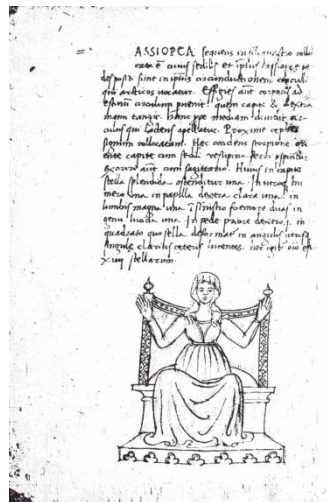 ASSIOPEA sequens in siliquastro collo
cata ē cuius sedilis et ipsius cassiopeae pe
des positi sunt in ipsius circunductionem circuli
qui arcticos vocatur. Effigies aūt corporis ad
estiuū circulum peruenit: quem capite & dextra
manu tangit. hanc prope mediam diuidit cir
culus qui lacteus apellatur. Proxime cephei
signum collocatam. Hec occidens scorpione ori
ente capite cum sedili resupina ferri
exoriri aūt cum sagittario. Huius in capite
stella splendida ostenditur una. In utroque hu
mero una. in papilla dextra clara una. in
lumbis magna una. ī sinistro foemore duas in
genu lucida una. in pede prope dextro i. in
quadrato quo sella deformatur in angulis
clarius ceteris lucentes.
Xiiij stellarum.